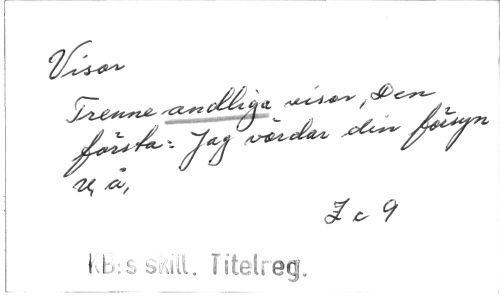 Visor
Trenne andliga visor, Den
första: Jag vördar din försyn
u, å,
Z c 9
KB:s skill. Titelreg.